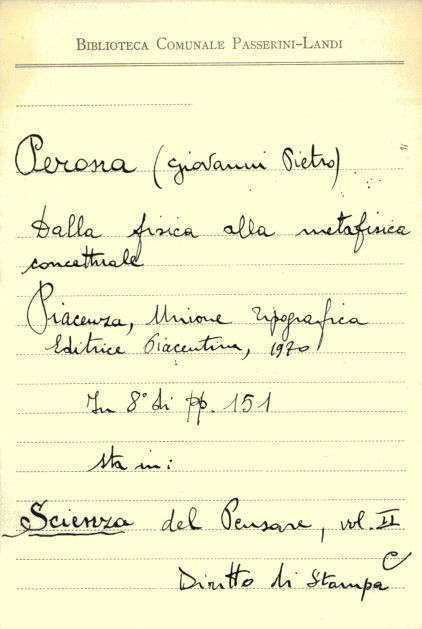 BIBLIOTECA COMUNALE PASSERINI-LANDI
Perona (Giovanni Pietro)
Dalla fisica alla metafisica
concettuale
Piacenza, Unione Tipografica
Editrice Piacentina, 1970
In 8° di pp. 151
sta in:
Scienza del Pensare, vol. II
Diritto di Stampa